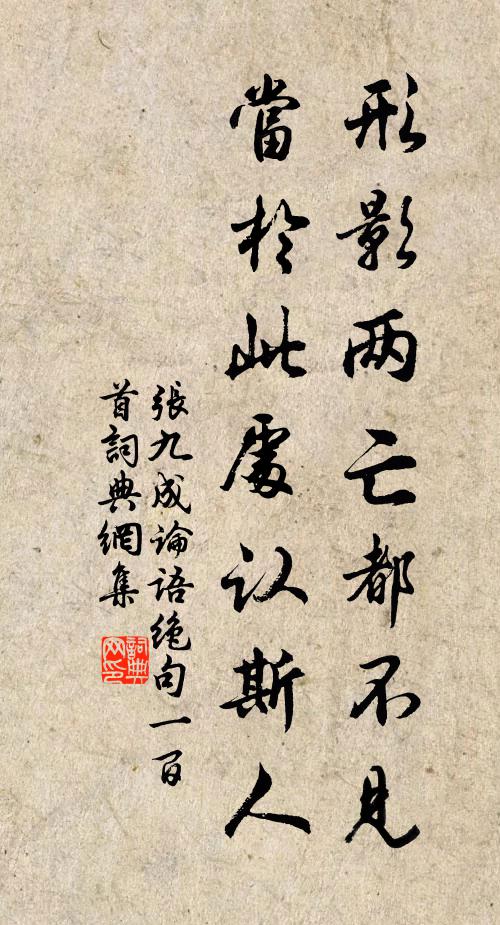 形影两亡都不見
當於此處认斯人
張九成論語絶句一百
首詞典網集
詞典网印